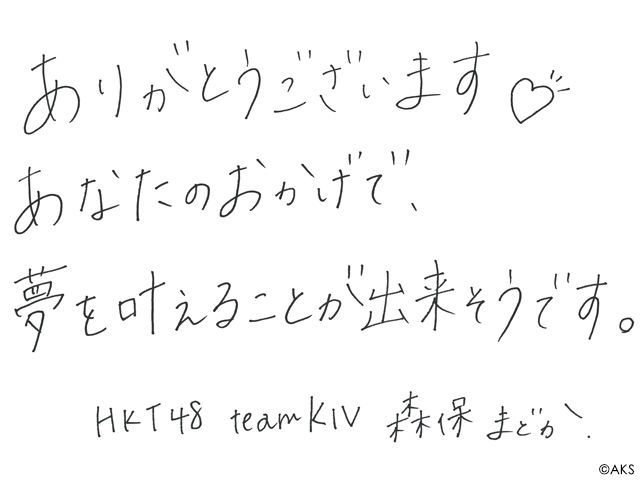 ありがとうございます♡
あなたのおかげで、
夢を叶えることが出来そうです。
HKT48 teamKIV 森保まどか.
©AKS